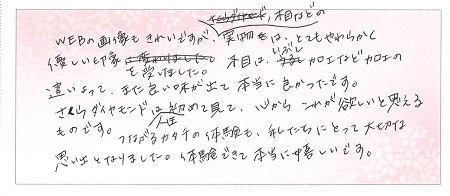 さくらダイヤモンド、木目などの
WEBの画像もきれいですが、実物は、とてもやわらかく
優しい印象を受けました。木目は、いぶし加工など加工の
違いよって、また良い味が出て本当に良かったです。
さくらダイヤモンドは人生初めて見て、心からこれが欲しいと思える
ものです。つながるカタチの体験も、私たちにとって大切な
思い出となりました。体験できて本当に嬉しいです。